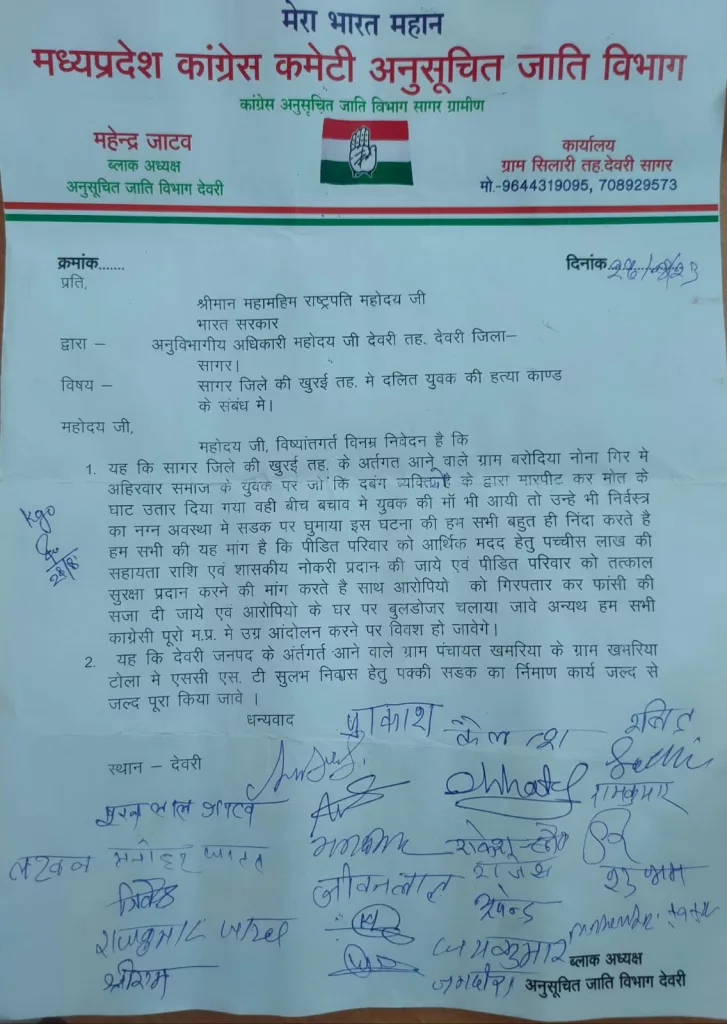 मेरा भारत महान
मध्यप्रदेश कांग्रेस कमेटी अनुसूचित जाति विभाग
कांग्रेस अनुसूचित जाति विभाग सागर ग्रामीण
महेन्द्र जाटव
ब्लाक अध्यक्ष
अनुसूचित जाति विभाग देवरी
कार्यालय
ग्राम सिलारी तह.देवरी सागर
मो.-9644319095, 708929573
क्रमांक.......
दिनांक
प्रति,
श्रीमान महामहिम राष्ट्रपति महोदय जी
भारत सरकार
द्वारा – अनुविभागीय अधिकारी महोदय जी देवरी तह. देवरी जिला–
सागर।
विषय – सागर जिले की खुरई तह. मे दलित युवक की हत्या काण्ड
के संबंध मे।
महोदय जी,
महोदय जी, विष्यांतगर्त विनम्र निवेदन है कि
1. यह कि सागर जिले की खुरई तह. के अर्तगत आने वाले ग्राम बरोदिया नोना गिर मे
अहिरवार समाज के युवक पर जो कि दबंग के द्वारा मारपीट कर मोत के
घाट उतार दिया गया वही बीच बचाव मे युवक की मॉ भी आयी तो उन्हे भी निर्वस्त्र
का नग्न अवस्था मे सडक पर घुमाया इस घटना की हम सभी बहुत ही निंदा करते है
हम सभी की यह मांग है कि पीडित परिवार को आर्थिक मदद हेतु पच्चीस लाख की
सहायता राशि एवं शासकीय नोकरी प्रदान की जाये एवं पीडित परिवार को तत्काल
सुरक्षा प्रदान करने की मांग करते है साथ आरोपियो को गिरपतार कर फांसी की
सजा दी जाये एवं आरोपियो के घर पर बुलडोजर चलाया जावे अन्यथ हम सभी
काग्रेसी पूरो म.प्र. मे उग्र आंदोलन करने पर विवश हो जावेगे।
2. यह कि देवरी जनपद के अंर्तगर्त आने वाले ग्राम पंचायत खमरिया के ग्राम खमरिया
टोला मे एससी एस. टी सुलभ निवास हेतु पक्की सडक का र्निमाण कार्य जल्द से
जल्द पूरा किया जावे ।
धन्यवाद
प्रकाश
स्थान – देवरी
रामकुमार
जीवनलाल
राजेश
श्रीराम
ब्लाक अध्यक्ष
अनुसूचित जाति विभाग देवरी